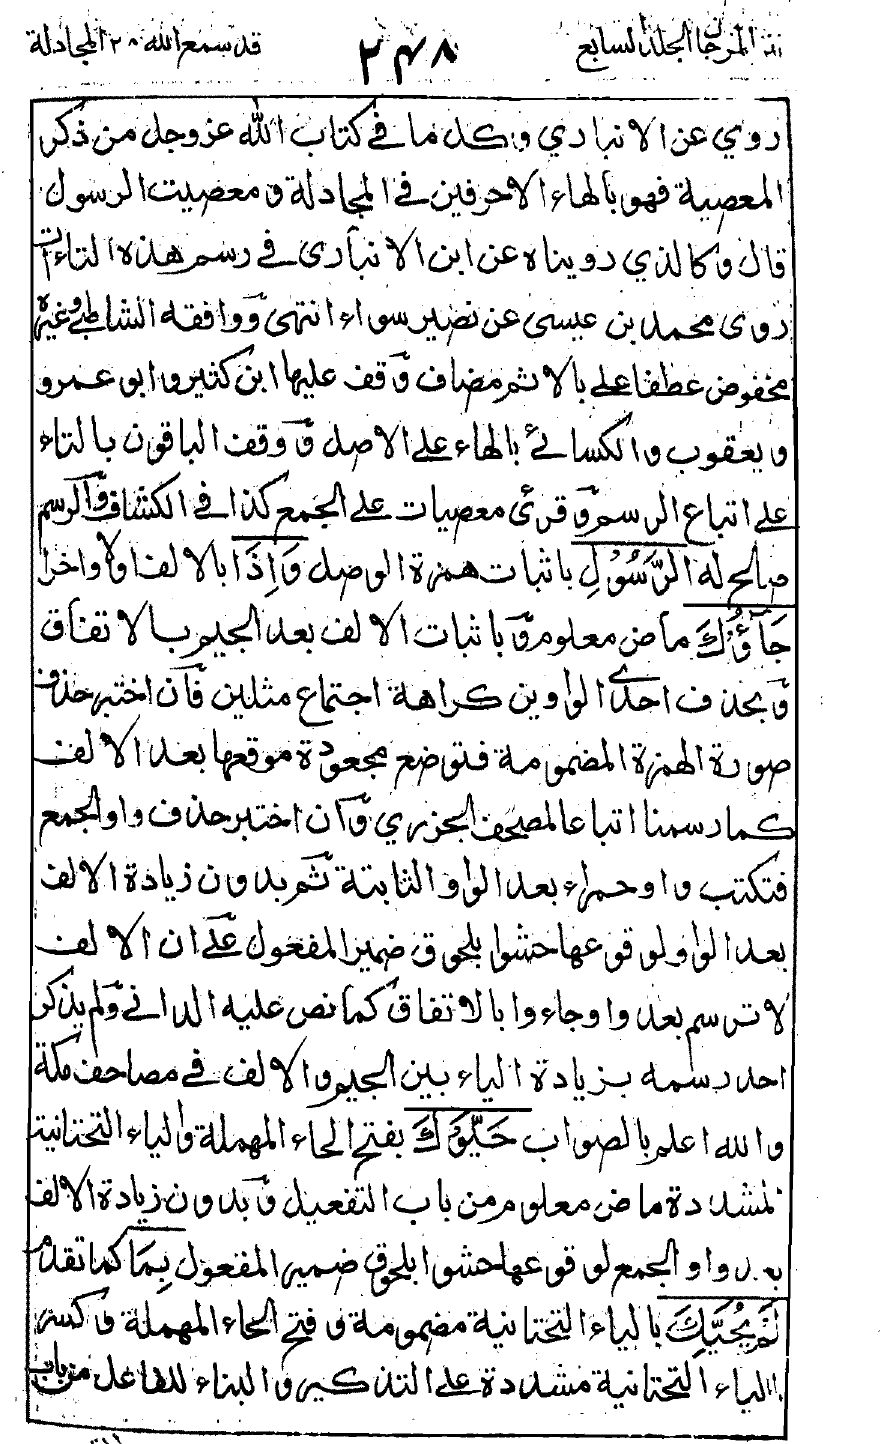 نثر المرجان الجلد السابع ٢٤٨ قد سمع الله ٢٨ المجادلة
روي عن الانباري وكل ما في كتاب الله عز وجل من ذكر
المعصية فهو بالهاء الا حرفين في المجادلة ومعصيت الرسول
قال وكالذي رويناه عن ابن الانباري في رسم هذه التاءات
روى محمد بن عيسى عن نصير سواء انتهى ووافقه الشاطبي وغيره
مخفوض عطفا على بالاثم مضاف وقف عليها ابن كثير وابو عمرو
ويعقوب والكسائي بالهاء على الاصل ووقف الباقون بالتاء
على اتباع الرسم وقرئ معصيات على الجمع كذا في الكشاف والرسم
صالح له الرَّسُوْلِ باثبات همزة الوصل وَاِذَا بالالف اولا واخرا
جَآؤُكَ ماض معلوم وباثبات الالف بعد الجيم بالاتفاق
وبحذف احدى الواوين كراهة اجتماع مثلين فان اختير حذف
صورة الهمزة المضمومة فتوضع مجعودة موقعها بعد الالف
كما رسمنا اتباعا لمصحف الجزري وان اختير حذف واو الجمع
فتكتب واو حمراء بعد الواو الثابتة ثم بدون زيادة الالف
بعد الواو لوقوعها حشوا بلحوق ضمير المفعول على ان الالف
لا ترسم بعد واو جاءوا بالاتفاق كما نص عليه الداني ولم يذكر
احد رسمه بزيادة الياء بين الجيم والالف في مصاحف مكة
والله اعلم بالصواب حَيَّوْكَ بفتح الحاء المهملة والياء التحتانية
المشددة ماض معلوم من باب التفعيل وبدون زيادة الالف
بعد واو الجمع لوقوعها حشوا بلحوق ضمير المفعول بِمَا كما تقدم
لَمْ يُحَيِّكَ بالياء التحتانية مضمومة وفتح الحاء المهملة وكسر
الياء التحتانية مشددة على التذكير والبناء للفاعل من باب